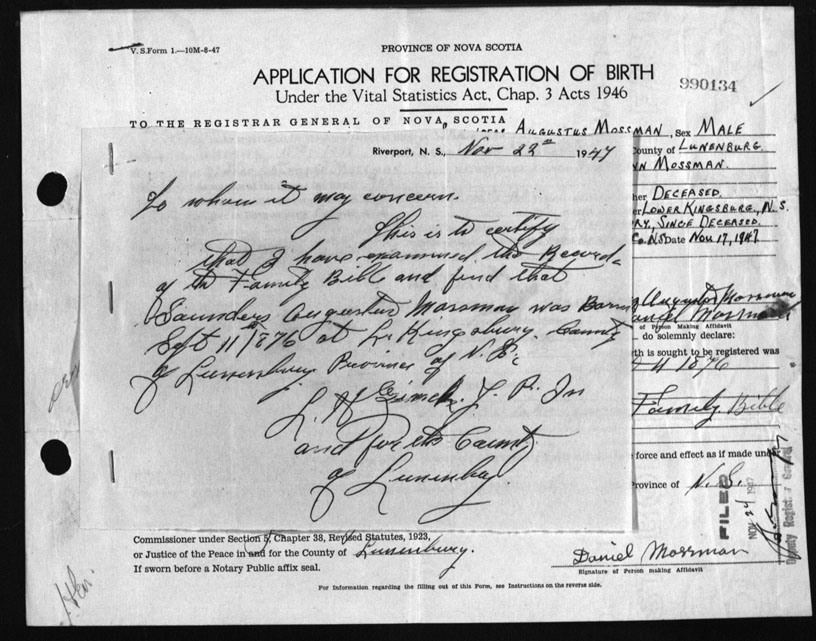 V. S. Form 1.—10M-8-47
PROVINCE OF NOVA SCOTIA
APPLICATION FOR REGISTRATION OF BIRTH
990134
Under the Vital Statistics Act, Chap. 3 Acts 1946
TO THE REGISTRAR GENERAL OF NOVA SCOTIA
AUGUSTUS MOSSMAN, Sex MALE
County of LUNENBURG.
MOSSMAN.
DECEASED.
LOWER KINGSBURG, N. S.
SINCE DECEASED.
Date NOV 17, 1947
Riverport, N. S., Nov 22nd 1947
To whom it may concern.
This is to certify
that I have examined the Record
of the Family Bible and find that
Saunders Augustus Mossman was Born
Sept 11th 1876 at Lr Kingsbury. County
of Lunenburg Province of N. S.
L. H. J. P. In
and for the County
of Lunenburg
Augustus Mossman
Daniel Mossman
of Person Making Affidavit
do solemnly declare:
th is sought to be registered was
11 1876
Family Bible
force and effect as if made under
Province of N. S.
FILED
NOV 24 1947
Deputy Registrar General
Commissioner under Section 5, Chapter 38, Revised Statutes, 1923,
or Justice of the Peace in and for the County of Lunenburg.
If sworn before a Notary Public affix seal.
Daniel Mossman
Signature of Person making Affidavit
For Information regarding the filling out of this Form, see Instructions on the reverse side.